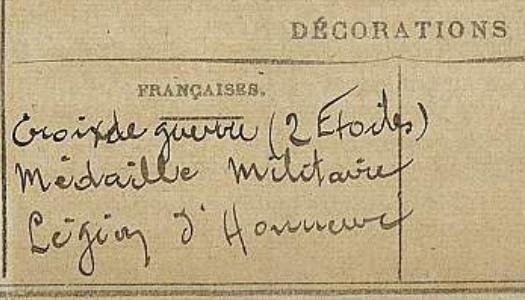 DÉCORATIONS
FRANÇAISES.
Croix de guerre (2 Etoiles)
Médaille Militaire
Légion d'Honneur